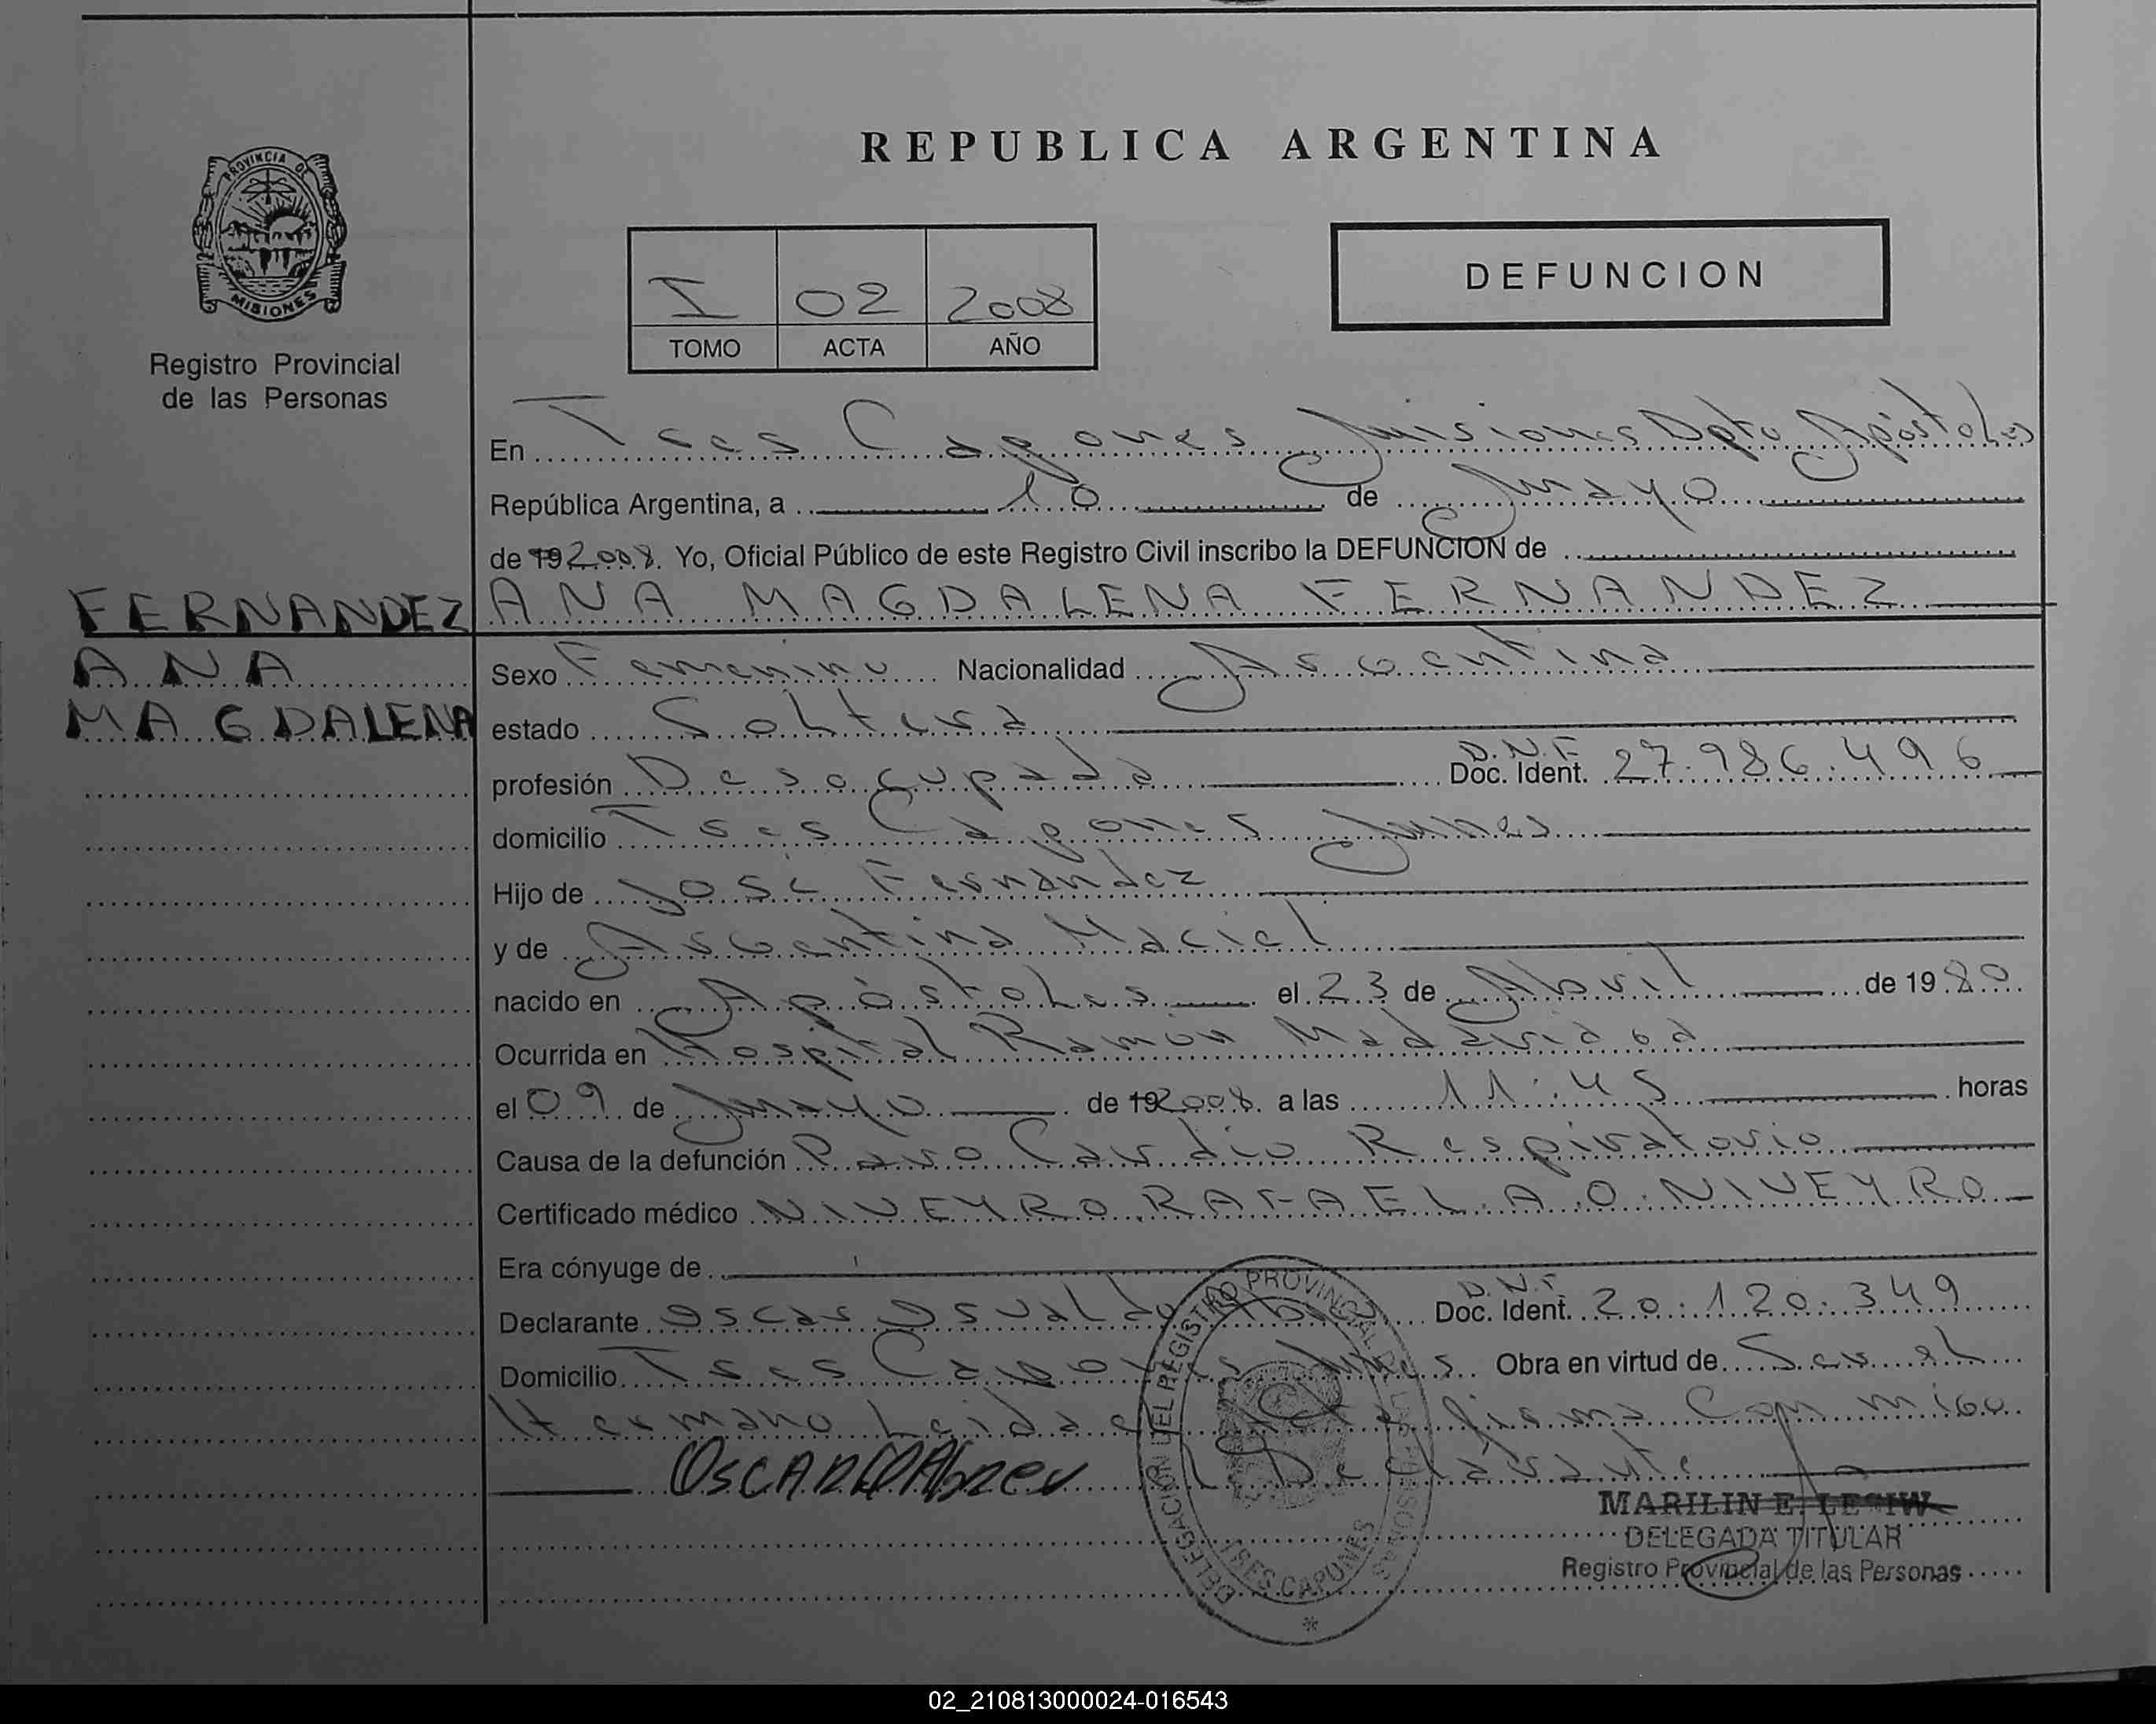 REPUBLICA ARGENTINA
PROVINCIA DE
MISIONES
Registro Provincial
de las Personas
I 02 2008
TOMO ACTA AÑO
DEFUNCION
En Tres Capones Misiones Dpto Apóstoles
República Argentina, a 10 de mayo
de 19 2008. Yo, Oficial Público de este Registro Civil inscribo la DEFUNCION de
FERNANDEZ
ANA
MAGDALENA
ANA MAGDALENA FERNANDEZ
Sexo Femenino Nacionalidad Argentina
estado Soltera
profesión Desocupada D.N.I. Doc. Ident. 27.986.496
domicilio Tres Capones Mnes
Hijo de José Fernández
y de Argentina Maciel
nacido en Apóstoles el 23 de Abril de 1980
Ocurrida en Hospital Ramón Madariaga
el 09 de mayo de 19 2008. a las 11:45 horas
Causa de la defunción Paro Cardio Respiratorio
Certificado médico NIVEYRO RAFAEL A.O. NIVEYRO
Era cónyuge de
Declarante Oscar Osvaldo D.N.I. Doc. Ident. 20.120.349
Domicilio Tres Capones Mnes Obra en virtud de Ser el
Hermano Leida el Acta firma Conmigo
el Declarante
OSCAR O Abreu
DELEGACION DEL REGISTRO PROVINCIAL DE LAS PERSONAS
TRES CAPONES
MARILIN E. LESIW
DELEGADA TITULAR
Registro Provincial de las Personas
02_210813000024-016543